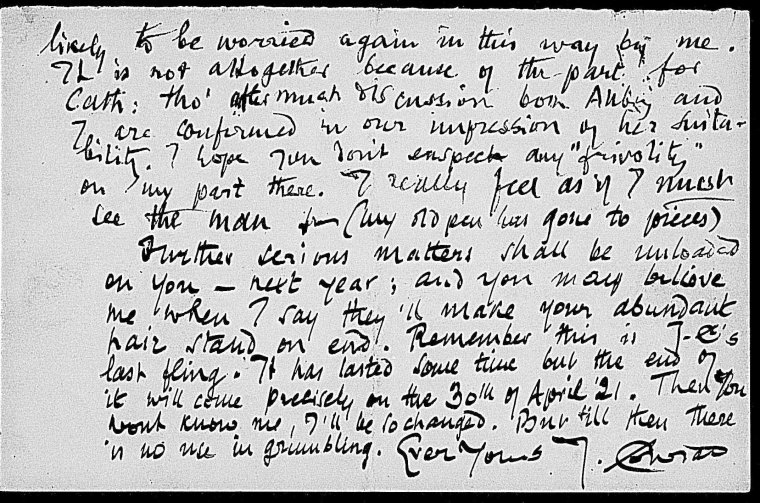 likely to be worried again in this way by me.
It is not altogether because of the part for
Cath: tho' after much discussion both Abbey and
I are confirmed in our impression of her suita-
bility. I hope you don't suspect any "frivolity"
on my part there. I really feel as if I must
see the man (my old pen has gone to pieces)
Further serious matters shall be unloaded
on you – next year; and you may believe
me when I say they'll make your abundant
hair stand on end. Remember this is J-C's
last fling. It has lasted some time but the end of
it will come precisely on the 30th of April '21. Then you
wont know me, I'll be so changed. But till then there
is no use in grumbling. Ever Yours J. Conrad